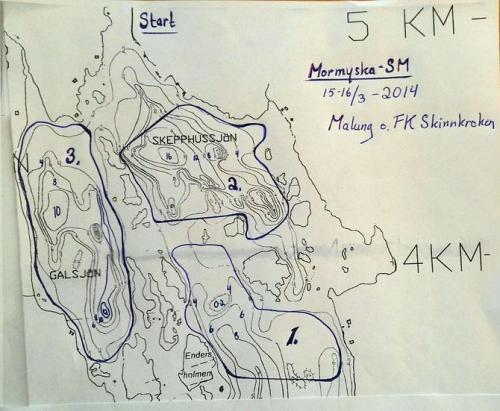 Start
5 KM-
Mormyska-SM
15-16/3-2014
Malung o. FK Skinnkroken
SKEPPHUSSJÖN
3.
2.
10
GALSJÖN
4KM-
1.
Enders
holmen